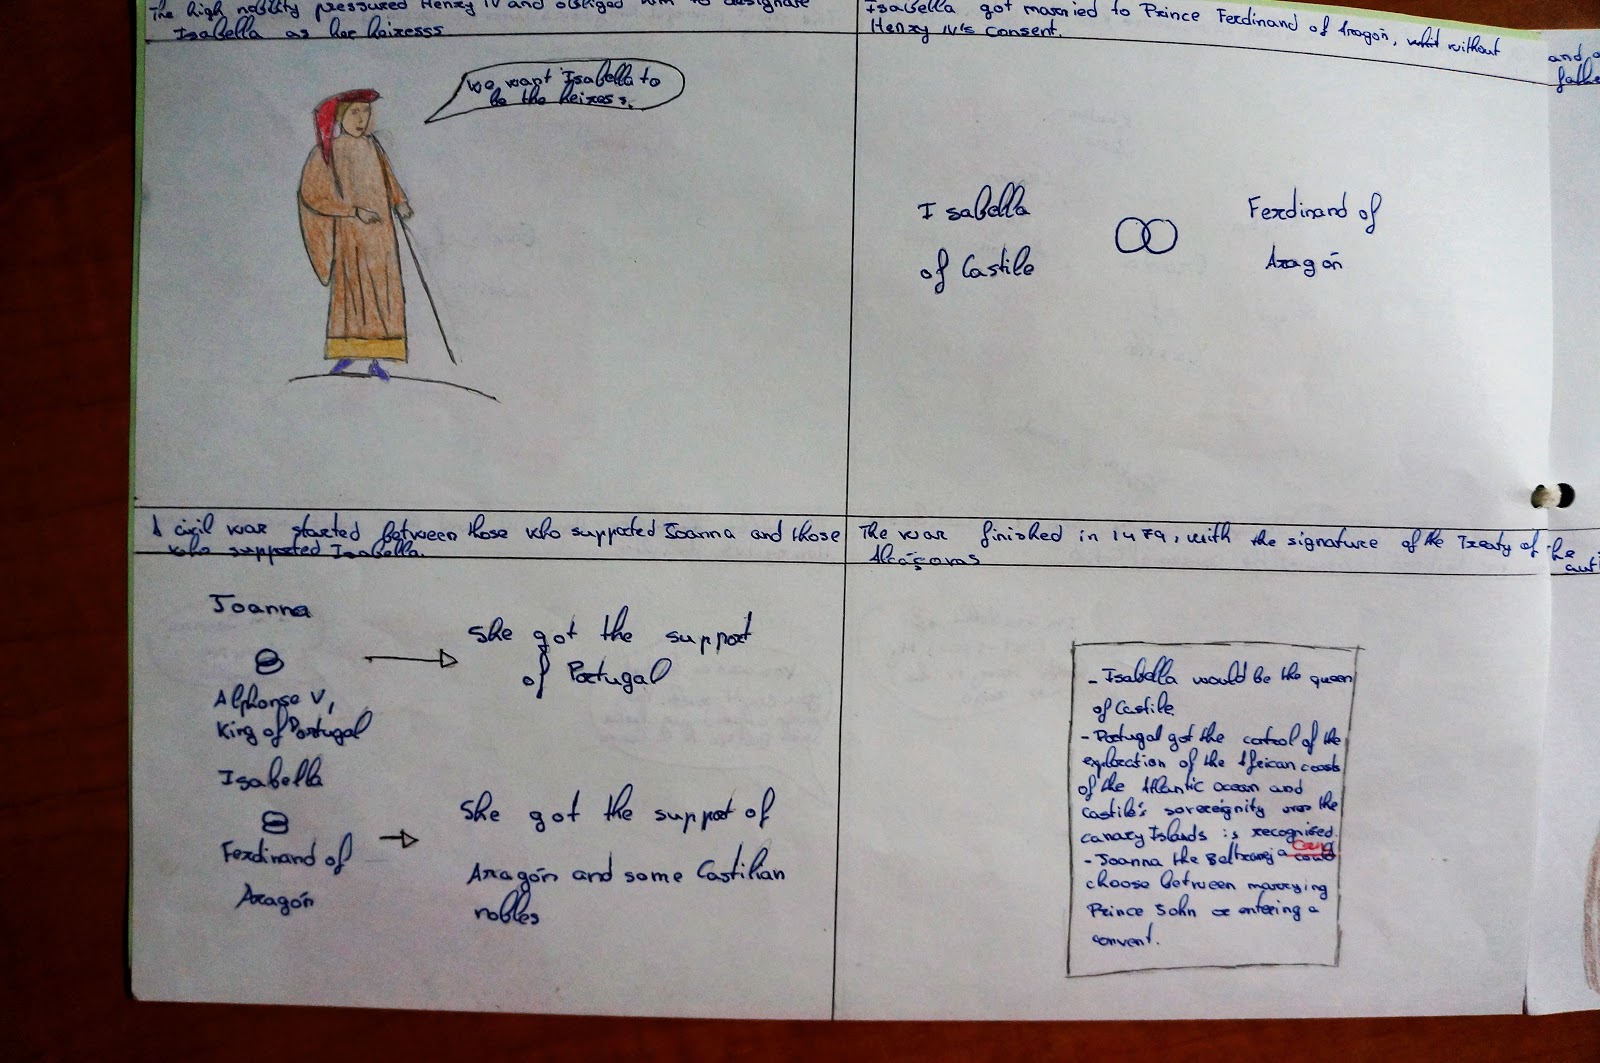 The high nobility pressured Henry IV and obliged him to designate
Isabella as her heiresss
We want Isabella to
be the heiress.
Isabella got married to Prince Ferdinand of Aragón, without
Henry IV's consent.
and
Isabella
of Castile
Ferdinand of
Aragón
A civil war started between those who supported Joanna and those
who supported Isabella.
Joanna
Alphonse V,
King of Portugal
She got the support
of Portugal
Isabella
Ferdinand of
Aragón
She got the support of
Aragón and some Castilian
nobles
The war finished in 1479, with the signature of the Treaty of the
Alcáçovas
- Isabella would be the queen
of Castile
- Portugal got the control of the
exploration of the African coasts
of the Atlantic ocean and
Castile's sovereignity over the
canary Islands is recognised.
- Joanna the Beltraneja could
choose between marrying
Prince John or entering a
convent.